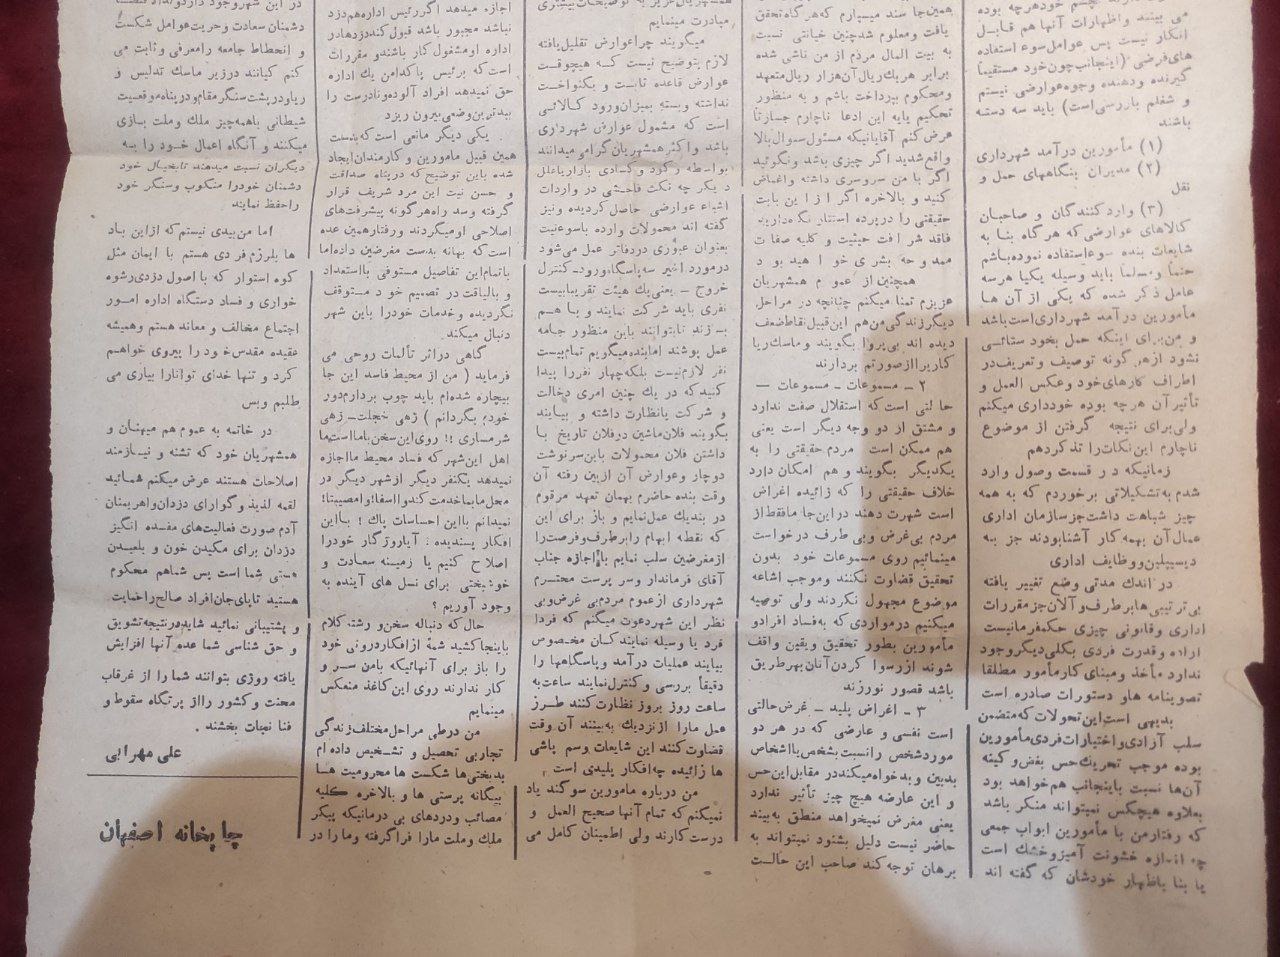 می بینند واظهارات آنها هم قابل
انکار نیست پس عوامل سوء استفاده
های فرضی (اینجانب چون خود مستقیماً
گیرنده و دهنده وجوه عوارض نیستم
و شغلم بازرسی است) باید سه دسته
باشند
(۱) مأمورین درآمد شهرداری
(۲) مدیران بنگاههای حمل و
نقل
(۳) وارد کنندگان و صاحبان
کالاهای عوارضی که هر گاه بنا به
شایعات بنده سوء استفاده نموده باشم
حتماً و مسلماً باید وسیله یکیا هرسه
عامل ذکر شده که یکی از آن ها
مأمورین درآمد شهرداری است باشد
و من برای اینکه حمل بخود ستائی
نشود از هر گونه توصیف و تعریف در
اطراف کارهای خود وعکس العمل و
تأثیر آن هر چه بوده خودداری میکنم
ولی برای نتیجه گرفتن از موضوع
ناچارم این نکات را تذکر دهم
زمانیکه در قسمت وصول وارد
شدم به تشکیلاتی برخوردم که به همه
چیز شباهت داشت جز سازمان اداری
عمال آن بهمه کار آشنا بودند جز به
دیسیپلین و وظایف اداری
در اندک مدتی وضع تغییر یافته
بی ترتیبی ها بر طرف و آلان جز مقررات
اداری و قانونی چیزی حکمفرما نیست
اراده و قدرت فردی بکلی دیگر وجود
ندارد مأخذ و مبنای کار مأمور مطلقا
تصویبنامه ها و دستورات صادره است
بدیهی است این تحولات که متضمن
سلب آزادی و اختیارات فردی مأمورین
بوده موجب تحریک حس بغض و کینه
آن ها نسبت باینجانب هم خواهد بود
بعلاوه هیچکس نمیتواند منکر باشد
که رفتار من با مأمورین ابواب جمعی
چه اندازه خشونت آمیز و خشک است
یا بنا باظهار خودشان که گفته اند
همین جا سند میسپارم که هر گاه تحقق
یافت و معلوم شد چنین خیانتی نسبت
به بیت المال مردم از من ناشی شده
برابر هر یک ریال آن هزار ریال متعهد
و محکوم بپرداخت باشم و به منظور
تحکیم پایه این ادعا ناچارم جسارتاً
عرض کنم آقایانیکه مسئول سوال بالا
واقع شدید اگر چیزی باشد و نگوئید
اگر با من سروسری داشته و اغماض
کنید و بالاخره اگر از این بابت
حقیقتی را در پرده استتار نگهدارید
فاقد شرافت حیثیت و کلیه صفات
ممدوحه بشری خواهید بود
همچنین از عموم همشهریان
عزیزم تمنا میکنم چنانچه در مراحل
دیگر زندگی من هم این قبیل نقاط ضعف
دیده اند بی پروا بگویند و ماسک ریا
کاری را از صورتم بردارند
۲ - مسموعات - مسموعات -
حالتی است که استقلال صفت ندارد
و مشتق از دو وجه دیگر است یعنی
هم ممکن است مردم حقیقتی را به
یکدیگر بگویند و هم امکان دارد
خلاف حقیقتی را که زائیده اغراض
است شهرت دهند در این جا ما فقط از
مردم بی غرض و بی طرف درخواست
مینمائیم روی مسموعات خود بدون
تحقیق قضاوت نکنند و موجب اشاعه
موضوع مجهول نگردند ولی توصیه
میکنیم در مواردی که به فساد افراد و
مأمورین بطور تحقیق و یقین واقف
شوند از رسوا کردن آنان بهر طریق
باشد قصور نورزند
۳ - اغراض پلید - غرض حالتی
است نفسی و عارضی که در هر دو
مورد شخص را نسبت بشخص یا اشخاص
بدبین و بدخواه میکند در مقابل این حس
و این عارضه هیچ چیز تأثیر ندارد
یعنی مغرض نمیخواهد منطق به بیند
حاضر نیست دلیل بشنود نمیتواند به
برهان توجه کند صاحب این حالت
همشهریان عزیز به توضیحات بیشتری
مبادرت مینمایم
میگویند چرا عوارض تقلیل یافته
لازم بتوضیح نیست که هیچوقت
عوارض قاعده ثابت و یکنواخت
نداشته و بسته بمیزان ورود کالائی
است که مشمول عوارض شهرداری
باشد و اکثر همشهریان گرامی میدانند
بواسطه رکود و کسادی بازار یا علل
دیگر چه نکث فاحشی در واردات
اشیاء عوارضی حاصل گردیده و نیز
گفته اند محمولات وارده با سوء نیت
بعنوان عبوری در دفاتر عمل می شود
در مورد اخیر سه پاسگاه ورود - کنترل
خروج - یعنی یک هیئت تقریبا بیست
نفری باید شرکت نمایند و با هم
بسازند تا بتوانند باین منظور جامه
عمل بپوشند اما بنده میگویم تمام بیست
نفر لازم نیست بلکه چهار نفر را پیدا
کنید که در یک چنین امری دخالت
و شرکت یا نظارت داشته و بیایند
بگویند فلان ماشین در فلان تاریخ با
داشتن فلان محمولات باین سرنوشت
دوچار و عوارض آن از بین رفته آن
وقت بنده حاضرم بهمان تعهد مرقوم
در بند یک عمل نمایم و باز برای این
که نقطه ابهام را بر طرف و فرصت را
از مغرضین سلب نمایم با اجازه جناب
آقای فرماندار و سر پرست محترم
شهرداری از عموم مردم بی غرض و بی
نظر این شهر دعوت میکنم که فردا
فرد یا وسیله نمایندگان مخصوص
بیایند عملیات درآمد و پاسگاهها را
دقیقاً بررسی و کنترل نمایند ساعت به
ساعت روز بروز نظارت کنند طرز
عمل ما را از نزدیک به بینند آن وقت
قضاوت کنند این شایعات و سم پاشی
ها زائیده چه افکار پلیدی است
من درباره مأمورین سوگند یاد
نمیکنم که تمام آنها صحیح العمل و
درست کارند ولی اطمینان کامل می
اجازه میدهد اگر رئیس اداره هم دزد
نباشد مجبور باشد قبول کند دزدها در
اداره او مشغول کار باشند و مقررات
است که برئیس پاکدامن یک اداره
حق نمیدهد افراد آلوده و نادرست را
بیدترین وضعی بیرون ریزد
یکی دیگر مانعی است که بدست
همین قبیل مأمورین و کارمندان ایجاد
شده باین توضیح که در پناه صداقت
و حسن نیت این مرد شریف قرار
گرفته و سد راه هر گونه پیشرفت های
اصلاحی او میگردند و رفتار همین عده
است که بهانه بدست مغرضین داده اما
با تمام این تفاصیل مستوفی با استعداد
و بالیاقت در تصمیم خود متوقف
نگردیده و خدمات خود را باین شهر
دنبال میکند
گاهی در اثر تألمات روحی می
فرماید ( من از محیط فاسد این جا
بیچاره شده ام باید چوب بردارم دور
خودم بگردانم ) زهی خجلت - زهی
شرمساری !! روی این سخن با ما است ما
اهل این شهر که فساد محیط ما اجازه
نمیدهد یکنفر دیگر از شهر دیگر در
محل ما بما خدمت کند وا اسفا! وامصیبتا!
نمیدانم با این احساسات پاک ! با این
افکار پسندیده : آیا روزگار خود را
اصلاح کنیم یا زمینه سعادت و
خوشبختی برای نسل های آینده به
وجود آوریم ؟
حال که دنباله سخن و رشته کلام
باینجا کشید شمهٔ از افکار درونی خود
را باز برای آنهائیکه بامن سر و
کار ندارند روی این کاغذ منعکس
مینمایم
من در طی مراحل مختلف زندگی
تجاربی تحصیل و تشخیص داده ام
بدبختی ها شکست ها محرومیت ها
بیگانه پرستی ها و بالاخره کلیه
مصائب و دردهای بی درمانیکه پیکر
ملک و ملت ما را فرا گرفته و ما را در
دشمنان سعادت و حریت عوامل شکست
و انحطاط جامعه را معرفی و ثابت می
کنم کیانند در زیر ماسک تدلیس و
ریا و در پشت سنگر مقام و در پناه موقعیت
شیطانی با همه چیز ملک و ملت بازی
میکنند و آنگاه اعمال خود را به
دیگران نسبت میدهند تا بخیال خود
دشمنان خود را منکوب و سنگر خود
را حفظ نمایند
اما من بیدی نیستم که از این باد
ها بلرزم فردی هستم با ایمان مثل
کوه استوار که با اصول دزدی رشوه
خواری و فساد دستگاه اداره امور
اجتماع مخالف و معاند هستم و همیشه
عقیده مقدس خود را پیروی خواهم
کرد و تنها خدای توانا را بیاری می
طلبم و بس
در خاتمه به عموم هم میهنان و
همشهریان خود که تشنه و نیازمند
اصلاحات هستند عرض میکنم همه ائید
لقمه لذیذ و گوارای دزدان و اهریمنان
آدم صورت فعالیت های مفسده انگیز
دزدان برای مکیدن خون و بلعیدن
هستی شما است پس شما هم محکوم
هستید تا پای جان افراد صالح را حمایت
و پشتیبانی نمائید شاید در نتیجه تشویق
و حق شناسی شما عده آنها افزایش
یافته روزی بتوانند شما را از غرقاب
محنت و کشور را از پرتگاه سقوط و
فنا نجات بخشند .
علی مهرابی
چاپخانه اصفهان